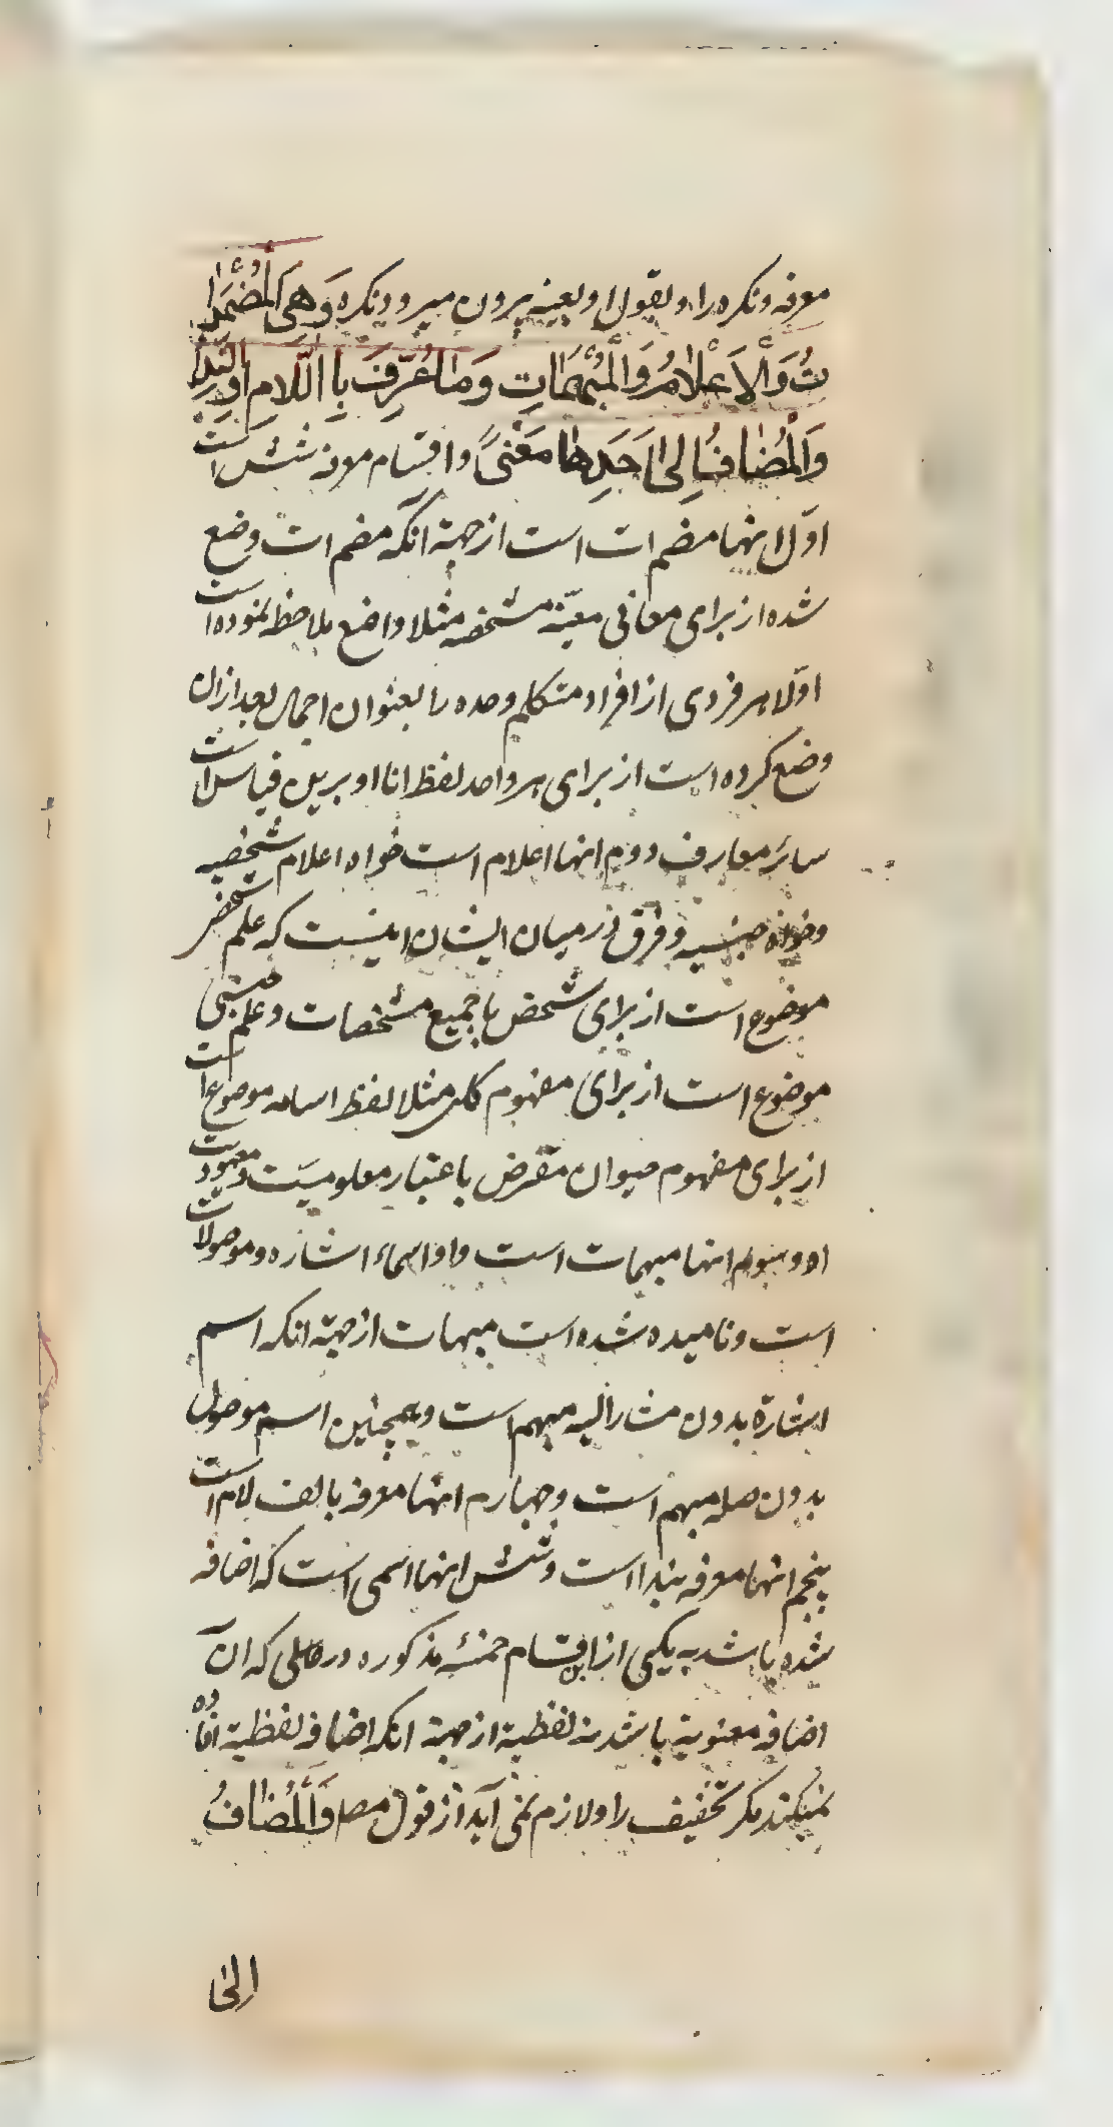 معرفه و نکره را و بقول او بعینه بیرون میرود نکره وَهِیَ المُضْمَرا
تُ وَالْاَعْلامُ وَالْمُبْهَمَاتِ وَمَا عُرِّفَ بِاللَّامِ اَوِ النِّداءِ
وَالْمُضافُ اِلیٰ اَحَدِهٰا مَعْنیً و اقسام معرفه شش است
اوّل اینها مضمرات است از جهة آنکه مضمرات وضع
شده از برای معانی معیّنهٔ مشخصه مثلا واضع ملاحظه نموده است
اوّلا هر فردی از افراد متکلم وحده را بعنوان اجمال بعد ازان
وضع کرده است از برای هر واحد لفظ انا او برین قیاس است
سائر معارف دویم اینها اعلام است خواه اعلام شخصیه
وخواه جنسیه و فرق در میان ایشان اینست که علم شخصی
موضوع است از برای شخص با جمیع مشخصات و علم جنسی
موضوع است از برای مفهوم کلی مثلا لفظ اسامه موضوع است
از برای مفهوم حیوان مفترض باعتبار معلومیّت و معهودیت
او و سیوم اینها مبهمات است واو اسماء اشاره و موصولات
است و نامیده شده است مبهمات از جهة انکه اسم
اشارة بدون مشارالیه مبهم است و همچنین اسم موصول
بدون صله مبهم است و چهارم اینها معرفه بالف لام است
پنجم اینها معرفه بندا است و شش اینها اسمی است که اضافه
شده باشد به یکی از این اقسام خمسهٔ مذکوره در حالی که ان
اضافه معنویة باشد نه لفظیة از جهة انکه اضافه لفظیة افاده
نمیکند مکر تخفیف را و لازم نمی آید از قول مصـ وَالْمُضافُ
الیٰ